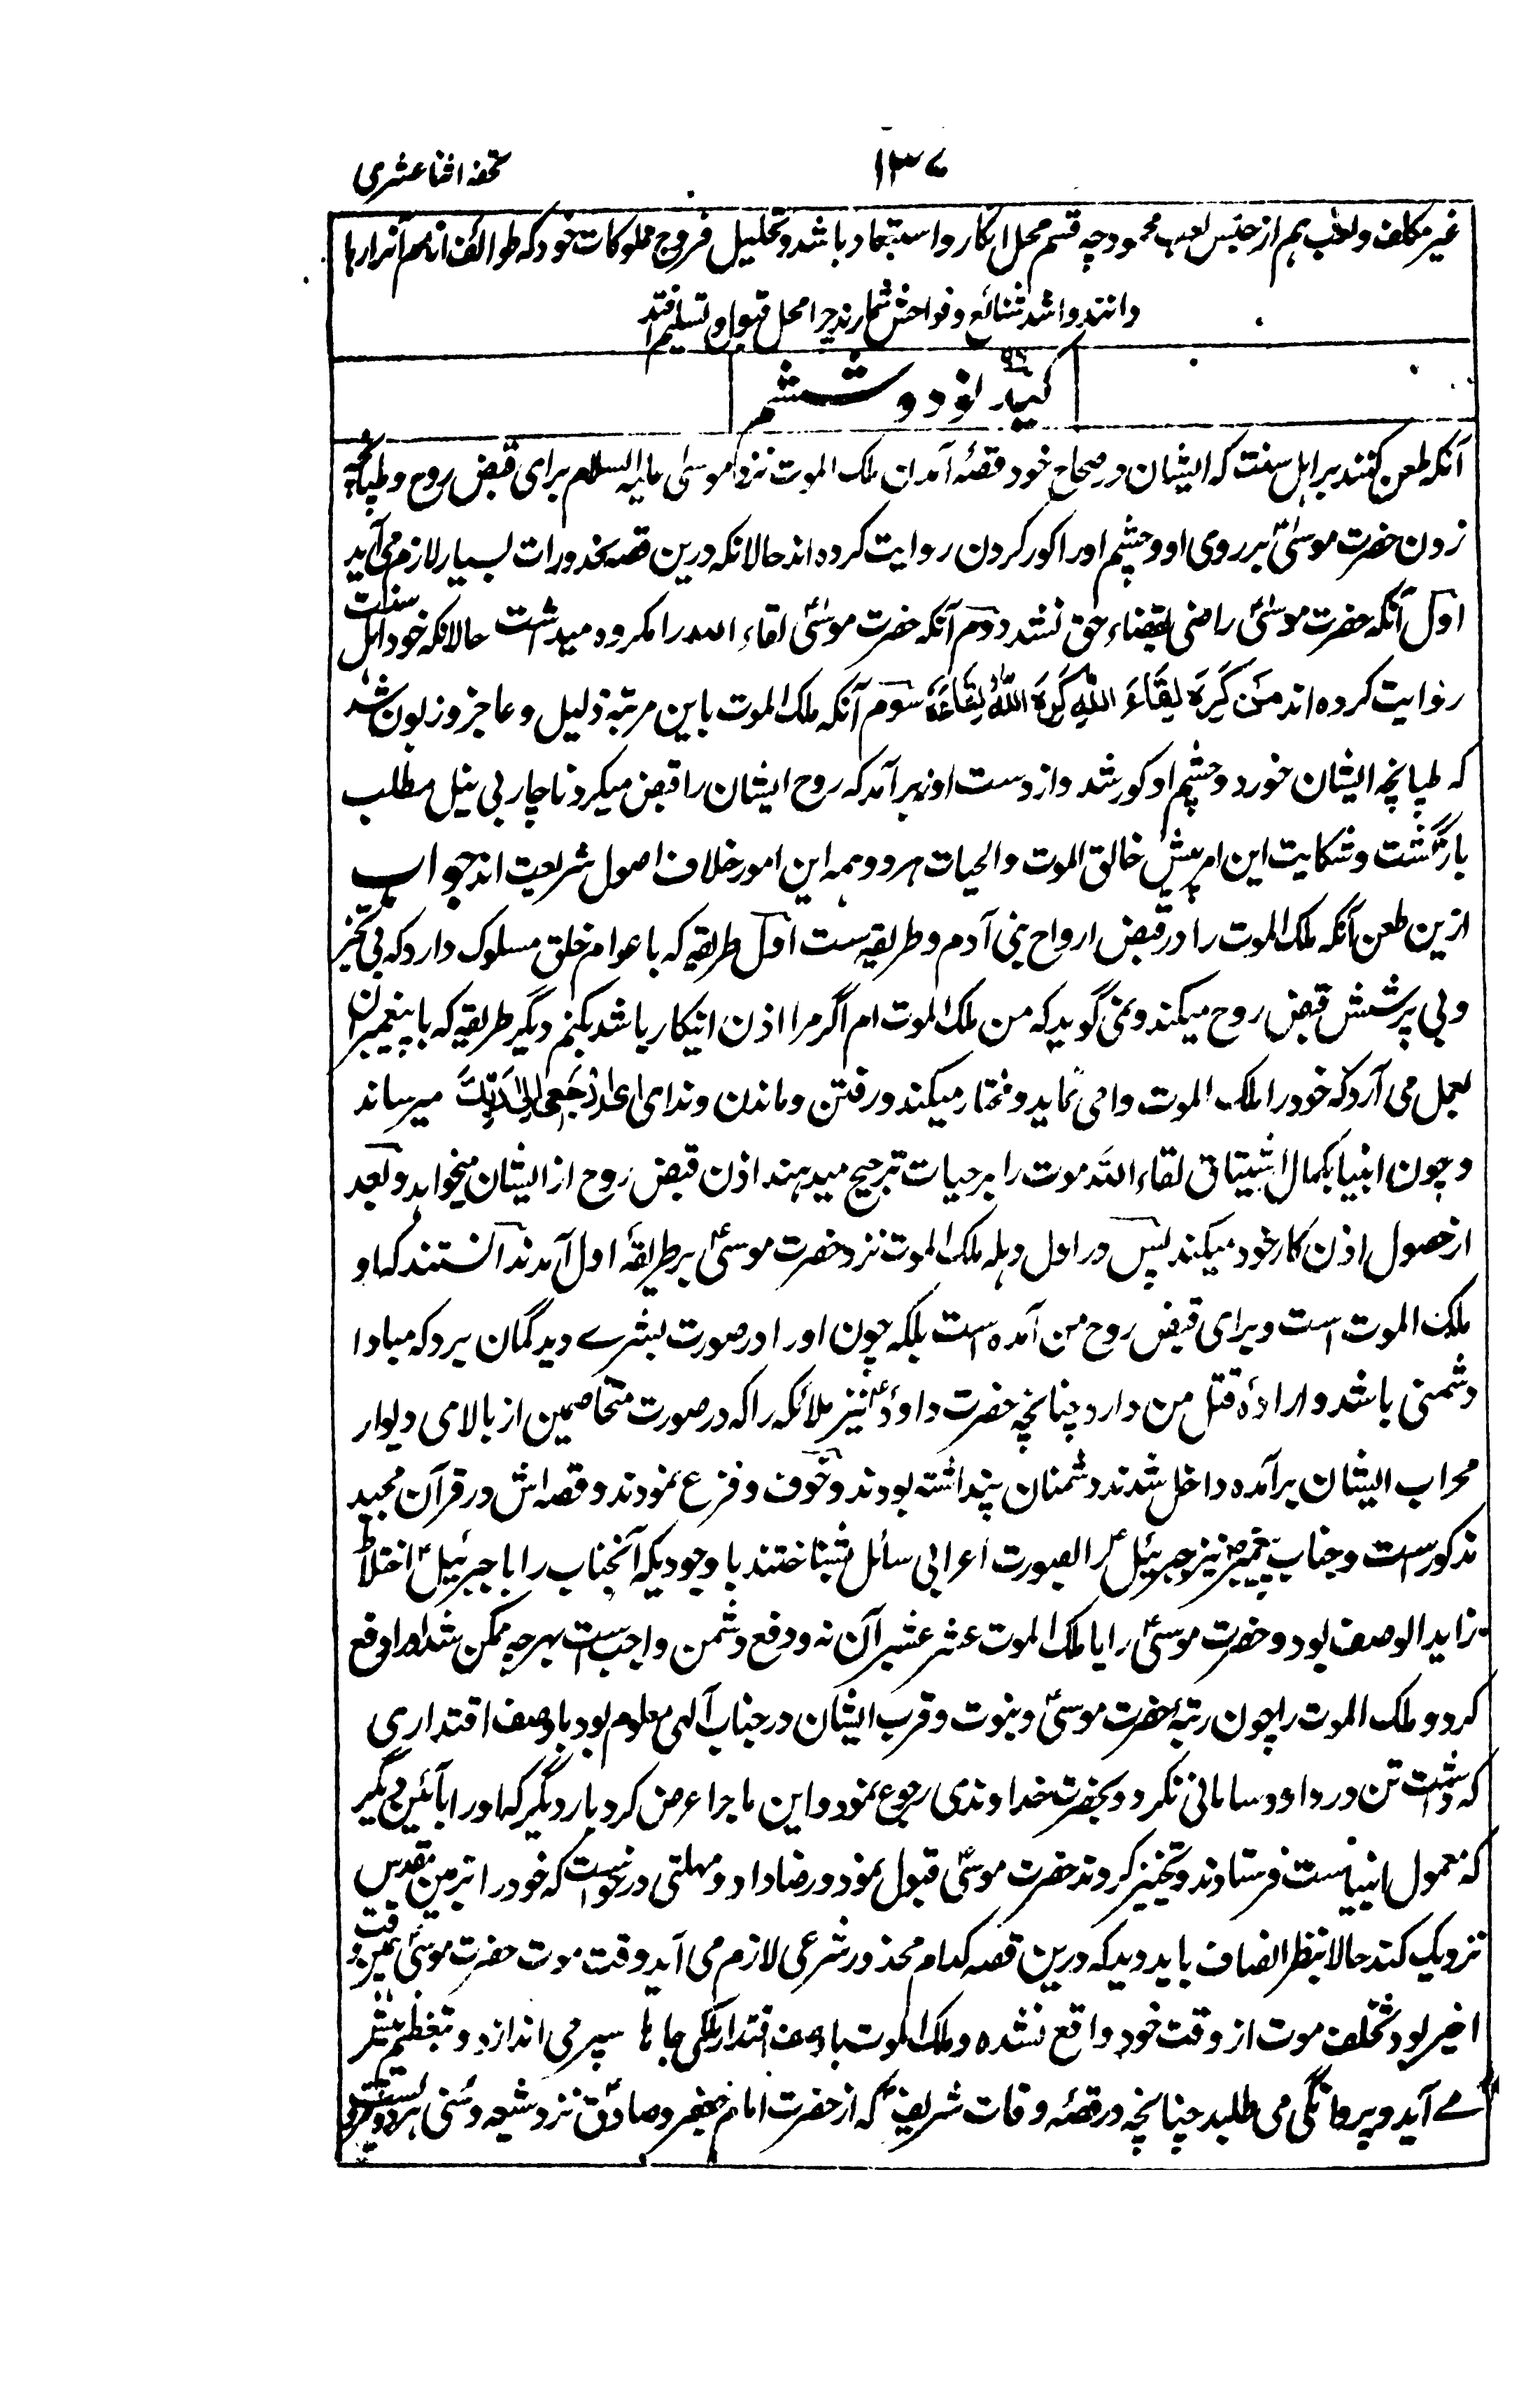 تحفه اثنا عشری
۱۳۷
غیر مکلف و لعب هم از جنس لعب محمود چه قسم محل انکار و استبعاد باشد و تحلیل فروج مملوکات خود که طوائف انام آنرا رها
دانند و اشد شنائع و فواحش شمارند چرا محل قبول و تسلیم افتد
کید نود و ششم ۹۶
آنکه طعن کنند بر اهل سنت که ایشان در صحاح خود قصهٔ آمدن ملک الموت نزد موسیٰ علیه السلام برای قبض روح و طپانچه
زدن حضرت موسیٰؑ بر روی او و چشم او را کور کردن روایت کرده اند حالانکه درین قصه محذورات بسیار لازم می آید
اول آنکه حضرت موسیٰؑ راضی بقضاء حق نشد دوم آنکه حضرت موسیٰؑ لقاء الله را مکروه میداشت حالانکه خود اهل سنت
روایت کرده اند مَن كَرِهَ لِقَاءَ اللّٰهِ كَرِهَ اللّٰهُ لِقَاءَهٗ سوم آنکه ملک الموت باین مرتبه ذلیل و عاجز و زبون شد
که طپانچه ایشان خورد و چشم او کور شد و از دست او نه برآمد که روح ایشان را قبض میکرد ناچار بی نیل مطلب
بازگشت و شکایت این امر پیش خالق الموت والحیات برد و همه این امور خلاف اصول شریعت اند جواب
ازین طعن آنکه ملک الموت را در قبض ارواح بنی آدم دو طریقه ست اول طریقه که با عوام خلق مسلوک دارد که بی تخییر
و بی پرسش قبض روح میکند و نمی گوید که من ملک الموت ام اگر مرا اذن اینکار باشد بکنم دیگر طریقه که با پیغمبران
بعمل می آرد که خود را ملک الموت وا می نماید و مختار میکند در رفتن و ماندن و ندای ارْجِعِي إِلَىٰ رَبِّكَ میرساند
و چون انبیا بکمال اشتیاق لقاء الله موت را بر حیات ترجیح میدهند اذن قبض روح از ایشان میخواهد و بعد
از حصول اذن کار خود میکند پس در اول وهله ملک الموت نزد حضرت موسیٰؑ بر طریقهٔ اول آمد ندانستند که او
ملک الموت است و برای قبض روح من آمده است بلکه چون او را در صورت بشرے دید گمان برد که مبادا
دشمنی باشد و ارادهٔ قتل من دارد چنانچه حضرت داودؑ نیز ملائکه را که در صورت متخاصمین از بالای دیوار
محراب ایشان برآمده داخل شدند دشمنان پنداشته بودند و خوف و فزع نمودند و قصه اش در قرآن مجید
مذکورست و جناب پیغمبرؐ نیز جبرئیلؑ را بصورت اعرابی سائل نشناختند با وجودیکه آنجناب را با جبرئیلؑ اختلاط
زاید الوصف بود و حضرت موسیٰؑ را با ملک الموت عشر عشیر آن نه و دفع دشمن واجب ست بهر چه ممکن شد او را دفع
کرد و ملک الموت را چون رتبهٔ حضرت موسیٰؑ و نبوت و قرب ایشان در جناب آلهی معلوم بود با وصف اقتداری
که داشت تن در داد و ساماتی نکرد و بحضرت خداوندی رجوع نمود و این ماجرا عرض کرد بار دیگر که او را بآئین دیگر
که معمول انبیاست فرستادند و تخییر کردند حضرت موسیٰؑ قبول نمود و رضا داد و مهلتی درخواست که خود را بزمین مقدس
نزدیک کند حالا بنظر انصاف باید دید که درین قصه کدام محذور شرعی لازم می آید وقت موت حضرت موسیٰؑ همین وقت
اخیر بود تخلف موت از وقت خود واقع نشده و ملک الموت باوصف اقتدار ملکی جا ها سپر می اندازد و بتعظیم بشر
مے آید و پروانگی می طلبد چنانچه در قصهٔ وفات شریف که از حضرت امام جعفر صادقؑ نزد شیعه و سنی هر دو